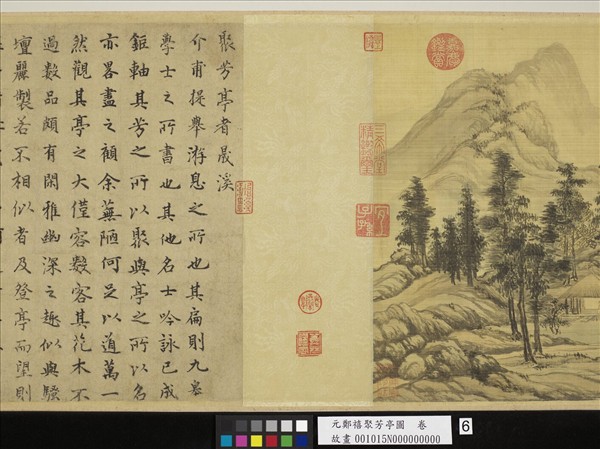 聚芳亭者晟溪
介甫提舉游息之所也其扁則九皋
學士之所書也其他名士吟詠已成
鉅軸其芳之所以聚與亭之所以名
亦畧盡之顧余蕪陋何足以道萬一
然觀其亭之大僅容數客其花木不
過數品頗有閑雅幽深之趣似與騷
壇麗製若不相似者及登亭而望則
元鄭禧聚芳亭圖 卷
故畫 001015N000000000
6